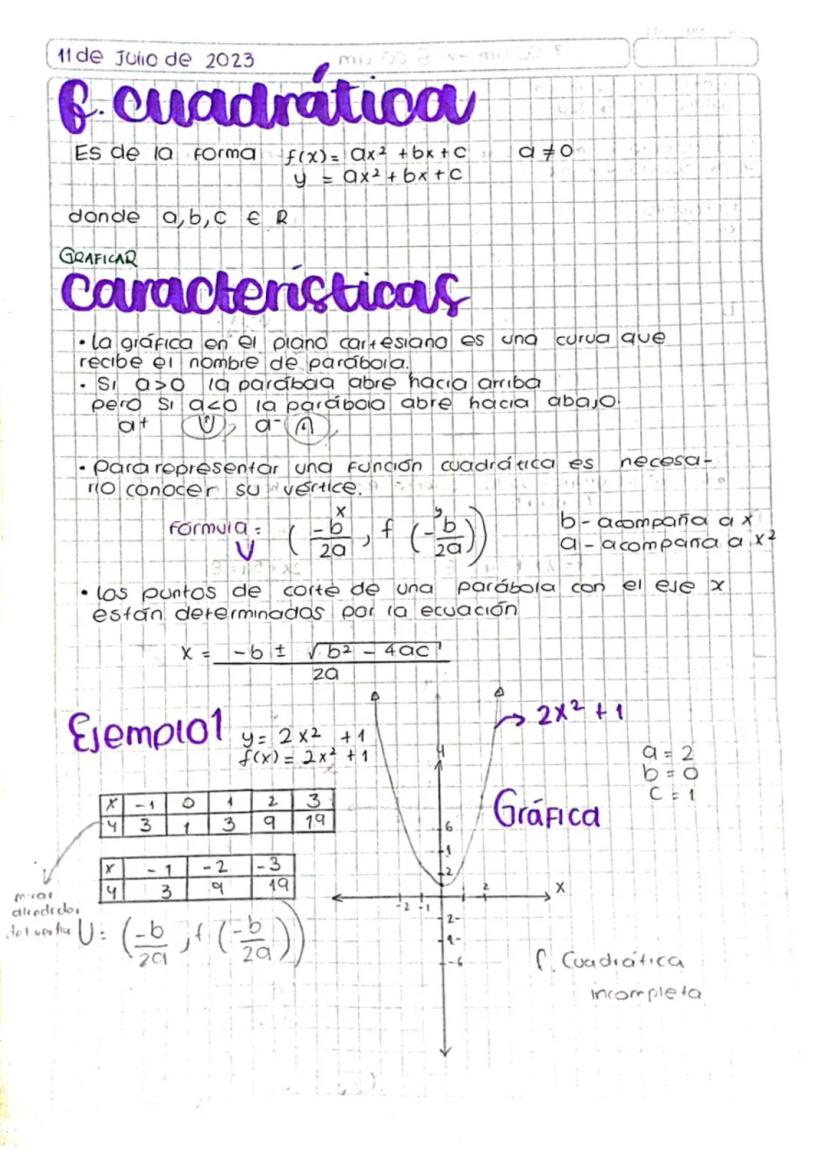 11 de Julio de 2023
f. cuadrática
Es de la forma f(x) = ax² + bx + c a ≠ 0
y = ax² + bx + c
donde a, b, c ∈ R
GRAFICAR
Características
• La gráfica en el plano cartesiano es una curva que
recibe el nombre de parábola.
• Si a>0 la parábola abre hacia arriba
pero si a<0 la parábola abre hacia abajo.
a+ (∪), a- (∩),
• Para representar una función cuadrática es necesa-
rio conocer su vértice.
x y
Fórmula: (-b/2a, f(-b/2a))
V
b - acompaña a x
a - acompaña a x²
• Los puntos de corte de una parábola con el eje x
están determinados por la ecuación
x = -b ± √b² - 4ac / 2a
Ejemplo 1 y = 2x² + 1
f(x) = 2x² + 1
→ 2x² + 1
a = 2
b = 0
c = 1
Gráfica
x -1 0 1 2 3
y 3 1 3 9 19
x -1 -2 -3
y 3 9 19
mirar
alrededor
del vertice
V = (-b/2a, f(-b/2a))
y
6
4
2
-2 -1 2 x
2-
4-
-6
f. Cuadrática
incompleta